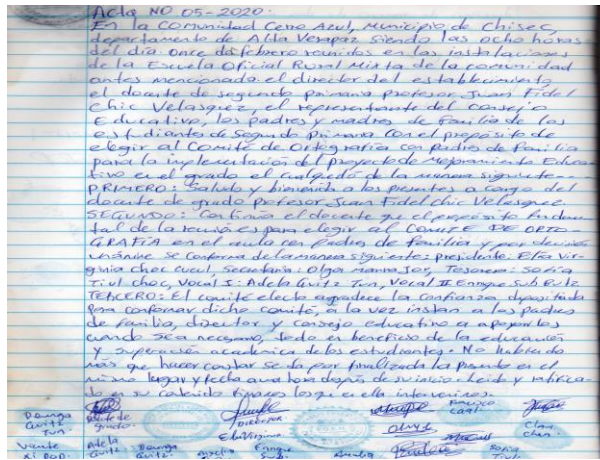 Acta NO 05-2020.
En la Comunidad Cerro Azul, Municipio de Chisec,
departamento de Alta Verapaz siendo las ocho horas
del día once de febrero reunidos en las instalaciones
de la Escuela Oficial Rural Mixta de la comunidad
antes mencionada. el director del establecimiento
el docente de segundo primaria profesor Juan Fidel
Chic Velasquez, el representante del consejo
Educativo, los padres y madres de familia de los
estudiantes de Segundo Primaria con el propósito de
elegir al Comité de Ortografía con padres de familia
para la implementación del proyecto de Mejoramiento Educa-
tivo en el grado el cual quedó de la manera siguiente--
PRIMERO: Saludo y bienvenida a los presentes a cargo del
docente de grado profesor Juan Fidel Chic Velasquez.
SEGUNDO: Continúa el docente que el propósito fundamen-
tal de la reunión es para elegir al COMITÉ DE ORTO-
GRAFÍA en el aula con padres de familia y por decisión
unánime se conforma de la manera siguiente: presidente: Elvia Vir-
ginia choc cucul, Secretaria: Olga marina Jor, Tesorera: Sofia
Tiul choc, Vocal I: Adela Quitz Tun, Vocal II Enrique Sub Butz
TERCERO: El comité electo agradece la confianza depositada
para conformar dicho comité, a la vez instan a los padres
de familia, director y consejo educativo a apoyarlos
cuando sea necesario, todo en beneficio de la educación
y superación académica de los estudiantes. No habiendo
más que hacer constar se da por finalizada la presente en el
mismo lugar y fecha una hora después de su inicio. Leído y ratifica-
do en su contenido firmamos los que en ella intervenimos.
Dominga Quitz Tun. docente de grado. DIRECTOR. Francisco caal. Clara chen.
Vicente Xi Pop. Adela Quitz. Dominga Quitz. Elva Virginia Enrique Sub. Amalia Sofia Tiul